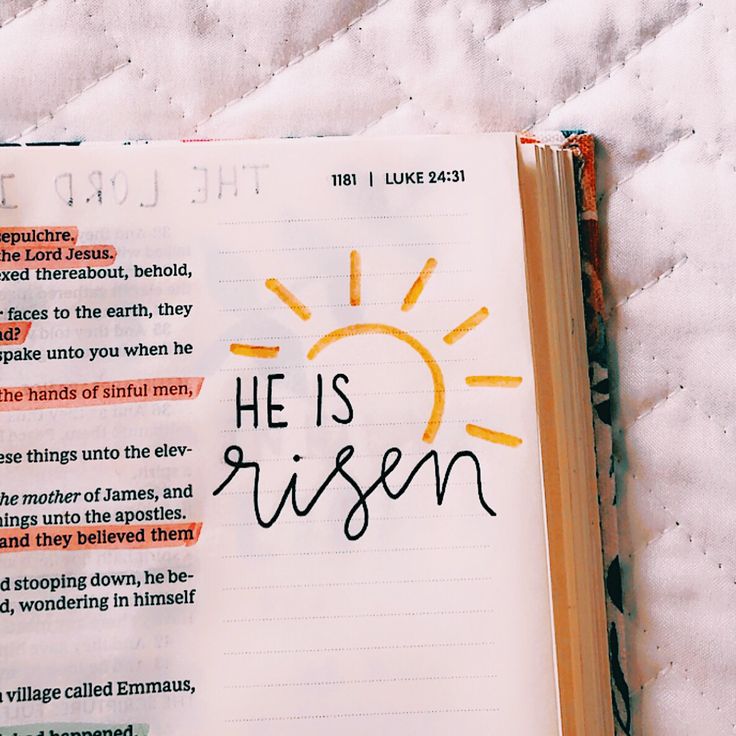 1181 | LUKE 24:31
sepulchre.
the Lord Jesus.
exed thereabout, behold,
r faces to the earth, they
ad?
spake unto you when he
the hands of sinful men,
ese things unto the elev-
he mother of James, and
hings unto the apostles.
and they believed them
d stooping down, he be-
d, wondering in himself
a village called Emmaus,
happened.
HE IS
risen